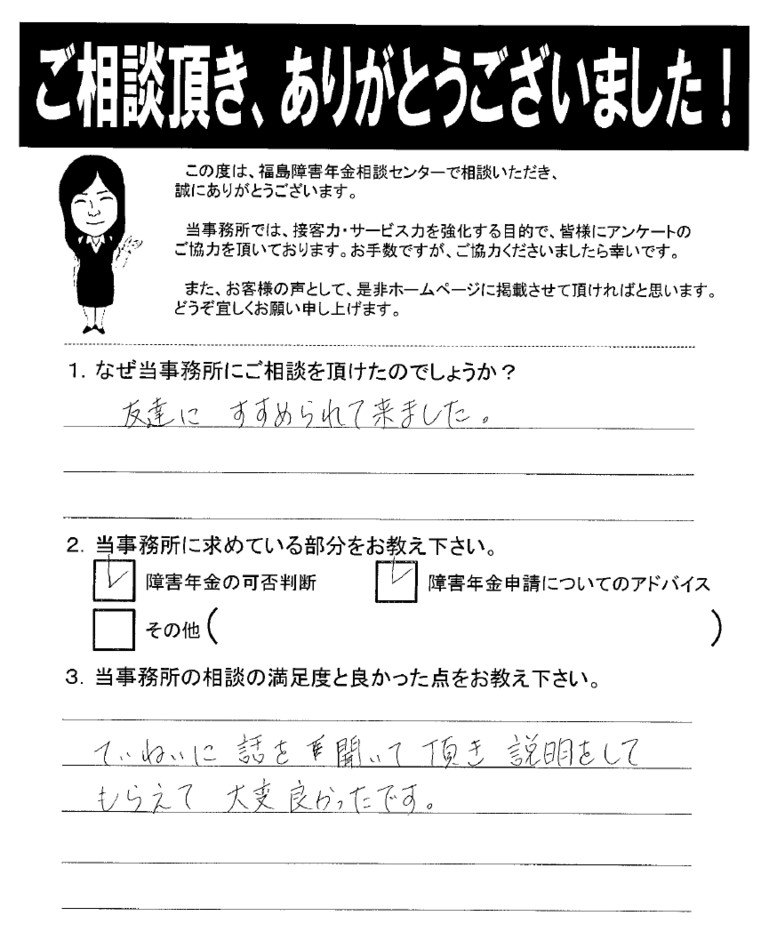 ご相談頂き、ありがとうございました！
この度は、福島障害年金相談センターで相談いただき、
誠にありがとうございます。
当事務所では、接客力・サービス力を強化する目的で、皆様にアンケートの
ご協力を頂いております。お手数ですが、ご協力くださいましたら幸いです。
また、お客様の声として、是非ホームページに掲載させて頂ければと思います。
どうぞ宜しくお願い申し上げます。
1．なぜ当事務所にご相談を頂けたのでしょうか？
友達に すすめられて来ました。
2．当事務所に求めている部分をお教え下さい。
障害年金の可否判断 障害年金申請についてのアドバイス
その他（ ）
3．当事務所の相談の満足度と良かった点をお教え下さい。
ていねいに 話を 聞いて 頂き 説明をして
もらえて 大変 良かったです。